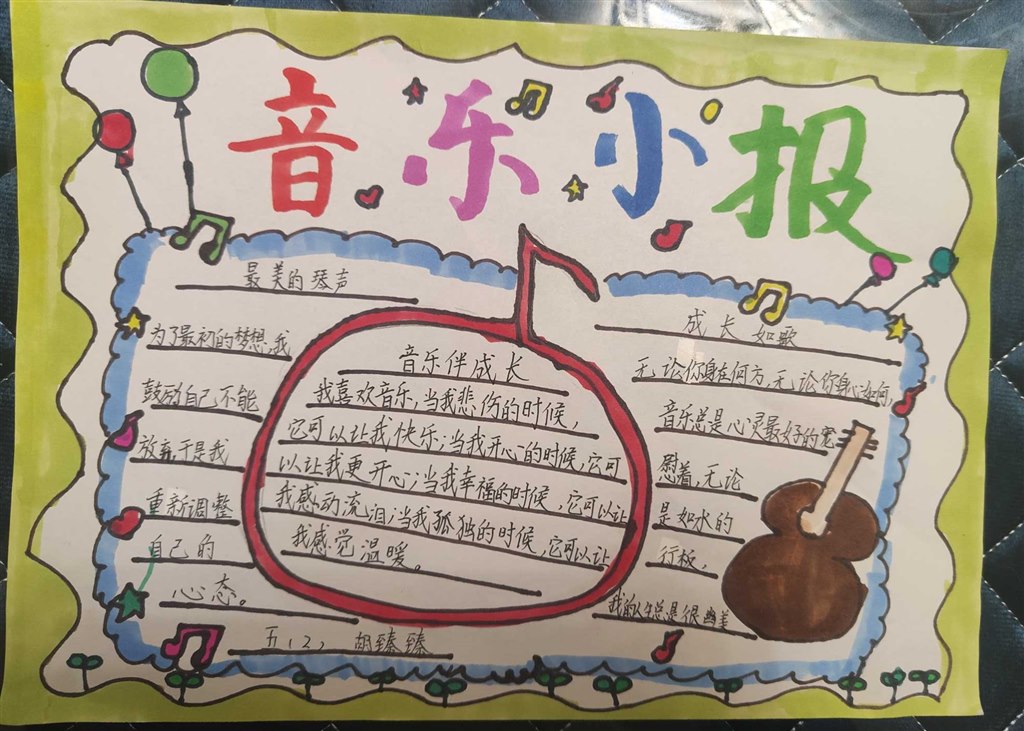 音乐小报
最美的琴声
为了最初的梦想,我
鼓励自己不能
放弃,于是我
重新调整
自己的
心态。
五,(2), 胡臻臻
音乐伴成长
我喜欢音乐,当我悲伤的时候,
它可以让我快乐;当我开心的时候,它可
以让我更开心;当我幸福的时候,它可以让
我感动流泪;当我孤独的时候,它可以让
我感觉温暖。
成长如歌
无论你身在何方,无论你身心如何,
音乐总是心灵最好的宽
慰着,无论
是如水的
行板,
我的人生总是很幽美